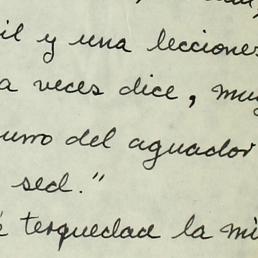 il y una lecciones
a veces dice, muy
urro del aguador
sed."
é terquedad la mi